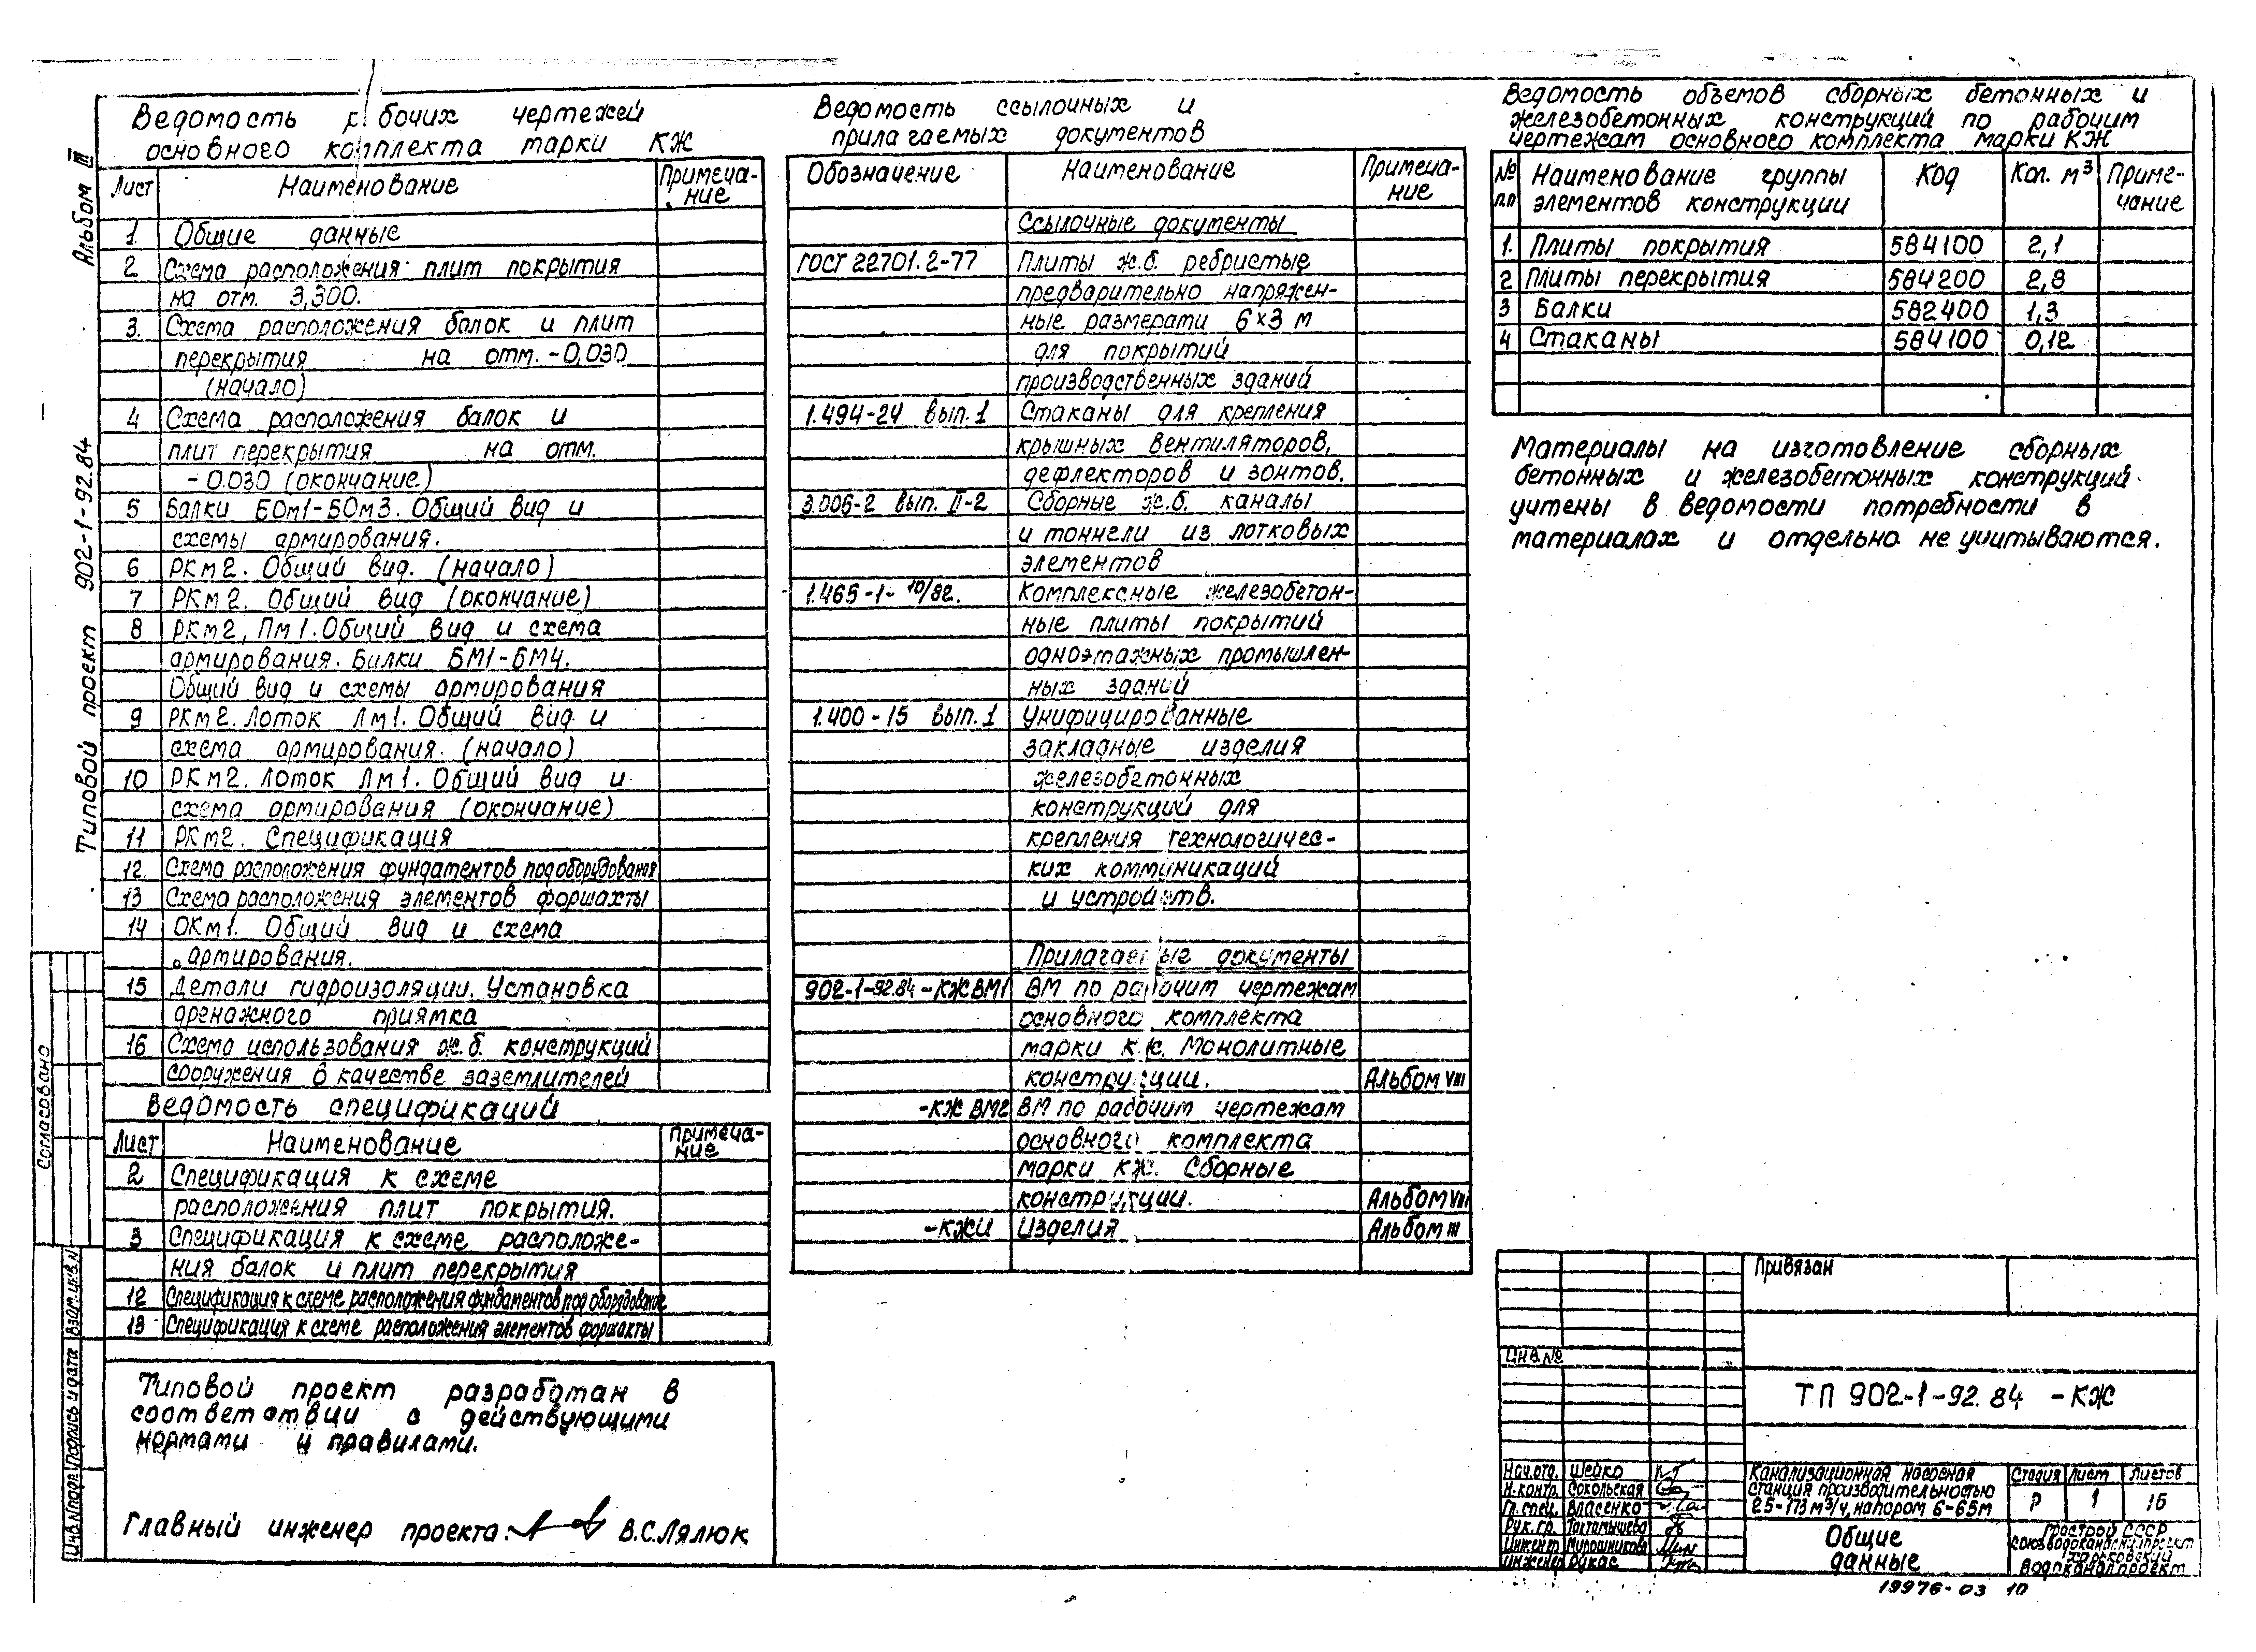 Альбом III
Типовой проект 902-1-92.84
Ведомость рабочих чертежей
основного комплекта марки КЖ
Лист Наименование Примеча-
ние
1. Общие данные
2 Схема расположения плит покрытия
на отм. 3,300.
3. Схема расположения балок и плит
перекрытия на отм. -0,030
(начало)
4 Схема расположения балок и
плит перекрытия на отм.
-0.030 (окончание)
5 Балки БОм1-БОм3. Общий вид и
схемы армирования.
6 РКм2. Общий вид. (начало)
7 РКм2. Общий вид (окончание)
8 РКм2, Пм1. Общий вид и схема
армирования. Балки БМ1-БМ4.
Общий вид и схемы армирования
9 РКм2. Лоток Лм1. Общий вид и
схема армирования. (начало)
10 РКм2. Лоток Лм1. Общий вид и
схема армирования (окончание)
11 РКм2. Спецификация
12. Схема расположения фундаментов под оборудования
13 Схема расположения элементов форшахты
14 ОКм1. Общий вид и схема
армирования.
15 Детали гидроизоляции. Установка
дренажного приямка
16 Схема использования ж.б. конструкций
сооружения в качестве заземлителей
Ведомость спецификаций
Лист Наименование Примеча-
ние
2 Спецификация к схеме
расположения плит покрытия.
3 Спецификация к схеме расположе-
ния балок и плит перекрытия
12 Спецификация к схеме расположения фундаментов под оборудование
13 Спецификация к схеме расположения элементов форшахты
Типовой проект разработан в
соответствии с действующими
нормами и правилами.
Главный инженер проекта: В.С.Лялюк
Ведомость ссылочных и
прилагаемых документов
Обозначение Наименование Примеча-
ние
Ссылочные документы
ГОСТ 22701.2-77 Плиты ж.б. ребристые
предварительно напряжен-
ные размерами 6×3 м
для покрытий
производственных зданий
1.494-24 вып.1 Стаканы для крепления
крышных вентиляторов,
дефлекторов и зонтов.
3.006-2 вып. II-2 Сборные ж.б. каналы
и тоннели из лотковых
элементов
1.465-1-10/82. Комплексные железобетон-
ные плиты покрытий
одноэтажных промышлен-
ных зданий
1.400-15 вып.1 Унифицированные
закладные изделия
железобетонных
конструкций для
крепления технологичес-
ких коммуникаций
и устройств.
Прилагаемые документы
902-1-92.84-КЖ ВМ1 ВМ по рабочим чертежам
основного комплекта
марки КЖ. Монолитные
конструкции. Альбом VIII
-КЖ ВМ2 ВМ по рабочим чертежам
основного комплекта
марки КЖ. Сборные
конструкции. Альбом VIII
-КЖИ Изделия Альбом III
Ведомость объемов сборных бетонных и
железобетонных конструкций по рабочим
чертежам основного комплекта марки КЖ
№ п.п Наименование группы элементов конструкции Код Кол. м³ Приме-
чание
1. Плиты покрытия 584100 2,1
2 Плиты перекрытия 584200 2,8
3 Балки 582400 1,3
4 Стаканы 584100 0,12
Материалы на изготовление сборных
бетонных и железобетонных конструкций
учтены в ведомости потребности в
материалах и отдельно не учитываются.
Привязан
Инв.№
ТП 902-1-92.84 -КЖ
Нач.отд. Шейко
Н.контр. Сокольская
Гл.спец. Власенко
Рук.гр. Тактамышева
Инженер Мирошникова
Инженер Рукас
Канализационная насосная
станция производительностью
25-173 м³/ч, напором 6-65м
Стадия Лист Листов
Р 1 16
Общие
данные
Госстрой СССР
Союзводоканалниипроект
Харьковский
Водоканалпроект
19976-03 10
Согласовано
Инв.№подл. Подпись и дата Взам.инв.№